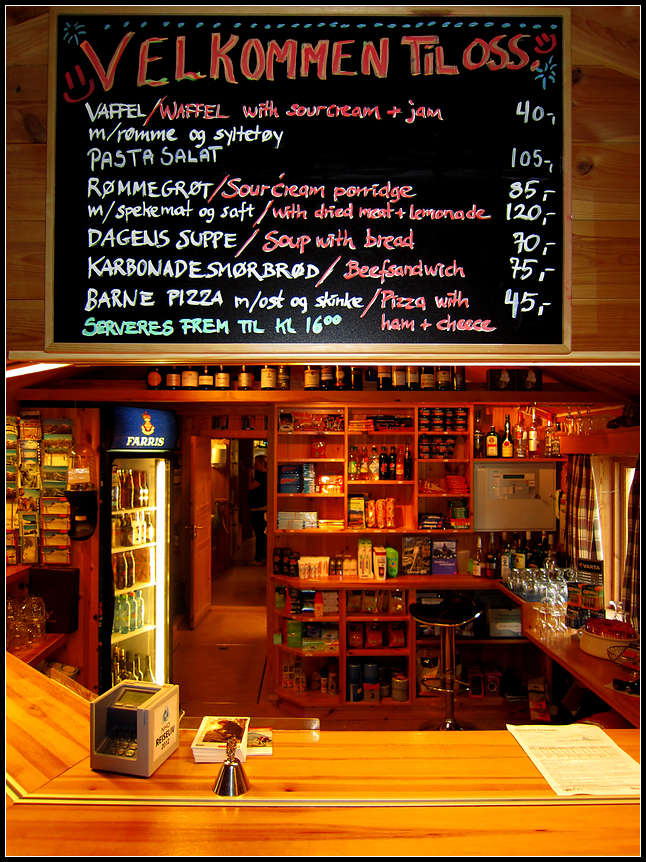 VELKOMMEN TIL OSS
VAFFEL/WAFFEL with sourcream + jam 40,-
m/rømme og syltetøy
PASTA SALAT 105,-
RØMMEGRØT/Sour cream porridge 85,-
m/spekemat og saft/with dried meat + lemonade 120,-
DAGENS SUPPE/Soup with bread 70,-
KARBONADESMØRBRØD/Beefsandwich 75,-
BARNE PIZZA m/ost og skinke/Pizza with 45,-
SERVERES FREM TIL KL 16⁰⁰ ham + cheese
FARRIS
VARTA